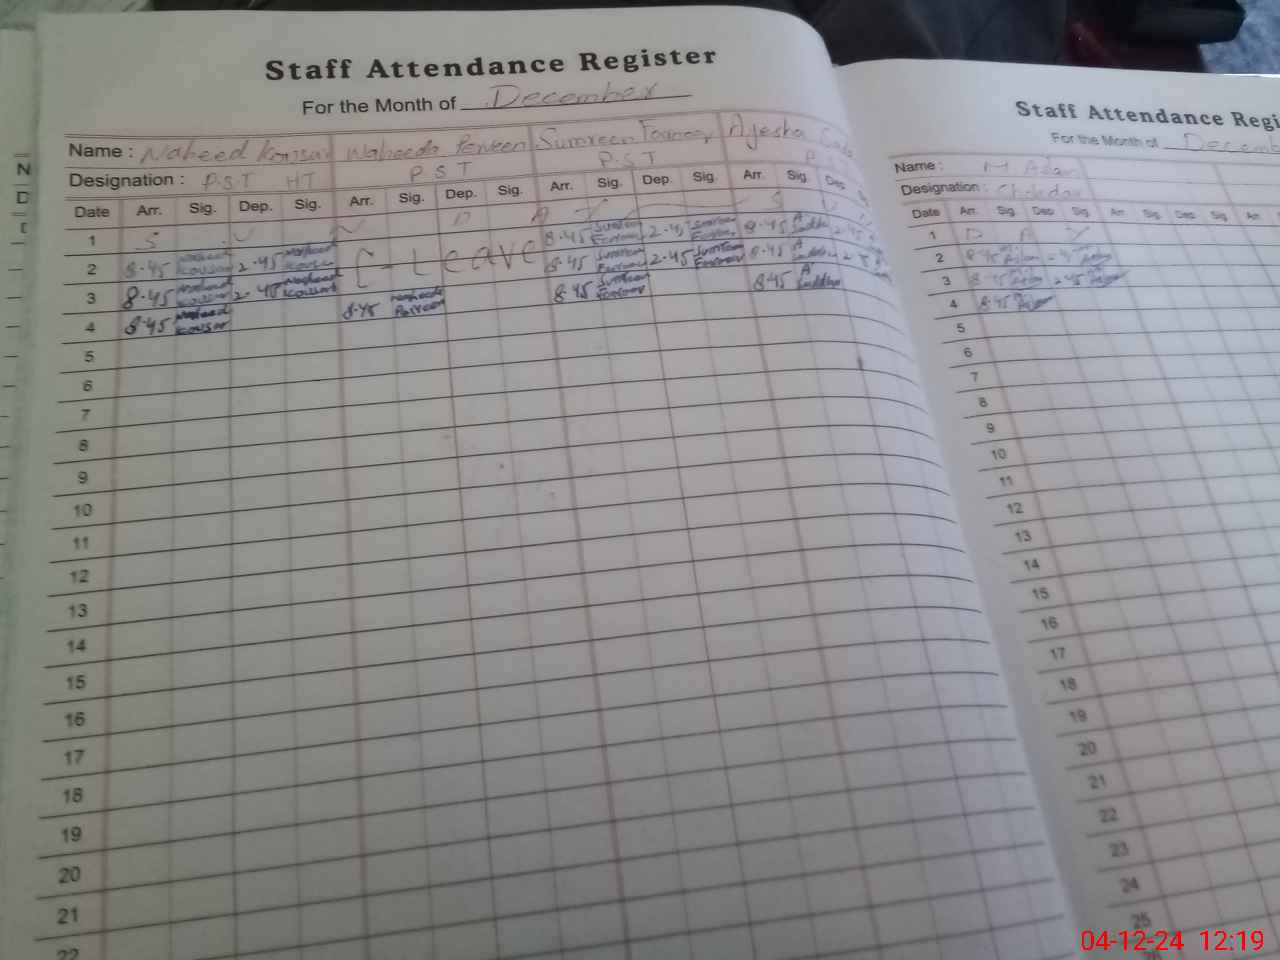 Staff Attendance Register
For the Month of December
Name : Naheed Kousar Waheeda Parveen Sumreen Ayesha
Designation : P.S.T HT P S T P.S T
Date Arr. Sig. Dep. Sig. Arr. Sig. Dep. Sig. Arr. Sig. Dep. Sig. Arr. Sig. Dep.
1 S U N D A Y S U
2 8.45 Naheed Kousar 2.45 Naheed Kousar C-Leave 8.45 2.45 8.45
3 8.45 Naheed Kousar 2.45 Naheed Kousar 8.45 2.45 8.45
4 8.45 Naheed Kousar 8.45 Waheeda Parveen 8.45 8.45
5
6
7
8
9
10
11
12
13
14
15
16
17
18
19
20
21
22
Staff Attendance Regi
For the Month of Decemb
Name : M. Aslam
Designation :
Date Arr. Sig. Dep. Sig. Arr. Sig. Dep. Sig. Arr.
1 D A Y
2 8.45
3 8.45 2.45
4 8.45
5
6
7
8
9
10
11
12
13
14
15
16
17
18
19
20
21
22
23
24
25
26
04-12-24 12:19